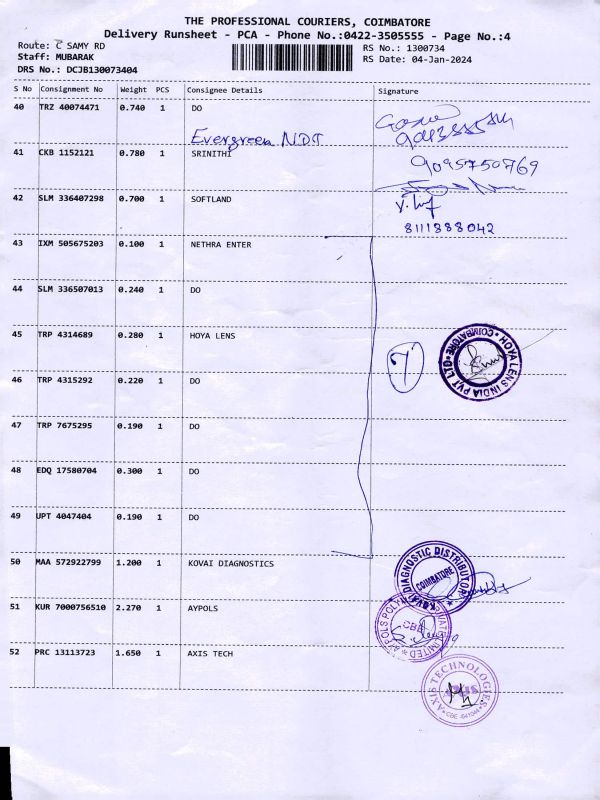 THE PROFESSIONAL COURIERS, COIMBATORE
Delivery Runsheet - PCA - Phone No.:0422-3505555 - Page No.:4
Route: C SAMY RD
RS No.: 1300734
Staff: MUBARAK
RS Date: 04-Jan-2024
DRS No.: DCJB130073404
S No Consignment No Weight PCS Consignee Details Signature
40 TRZ 40074471 0.740 1 DO
Evergreen NDT
41 CKB 1152121 0.780 1 SRINITHI 9095750769
42 SLM 336407298 0.700 1 SOFTLAND
8111888042
43 IXM 505675203 0.100 1 NETHRA ENTER
44 SLM 336507013 0.240 1 DO
45 TRP 4314689 0.280 1 HOYA LENS
7
HOYA LENS INDIA PVT LTD COIMBATORE
46 TRP 4315292 0.220 1 DO
47 TRP 7675295 0.190 1 DO
48 EDQ 17580704 0.300 1 DO
49 UPT 4047404 0.190 1 DO
50 MAA 572922799 1.200 1 KOVAI DIAGNOSTICS
KOVAI DIAGNOSTIC DISTRIBUTOR COIMBATORE
51 KUR 7000756510 2.270 1 AYPOLS
AYPOLS LIMITED CBE
52 PRC 13113723 1.650 1 AXIS TECH
AXIS TECHNOLOGIES